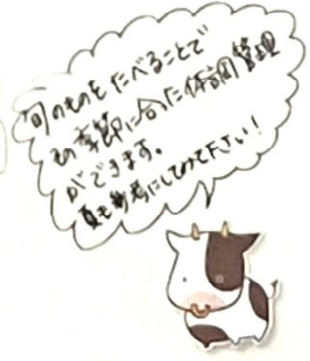 旬のものをたべることで
その季節に合った体調管理
ができます。
夏も参考にしてみて下さい!